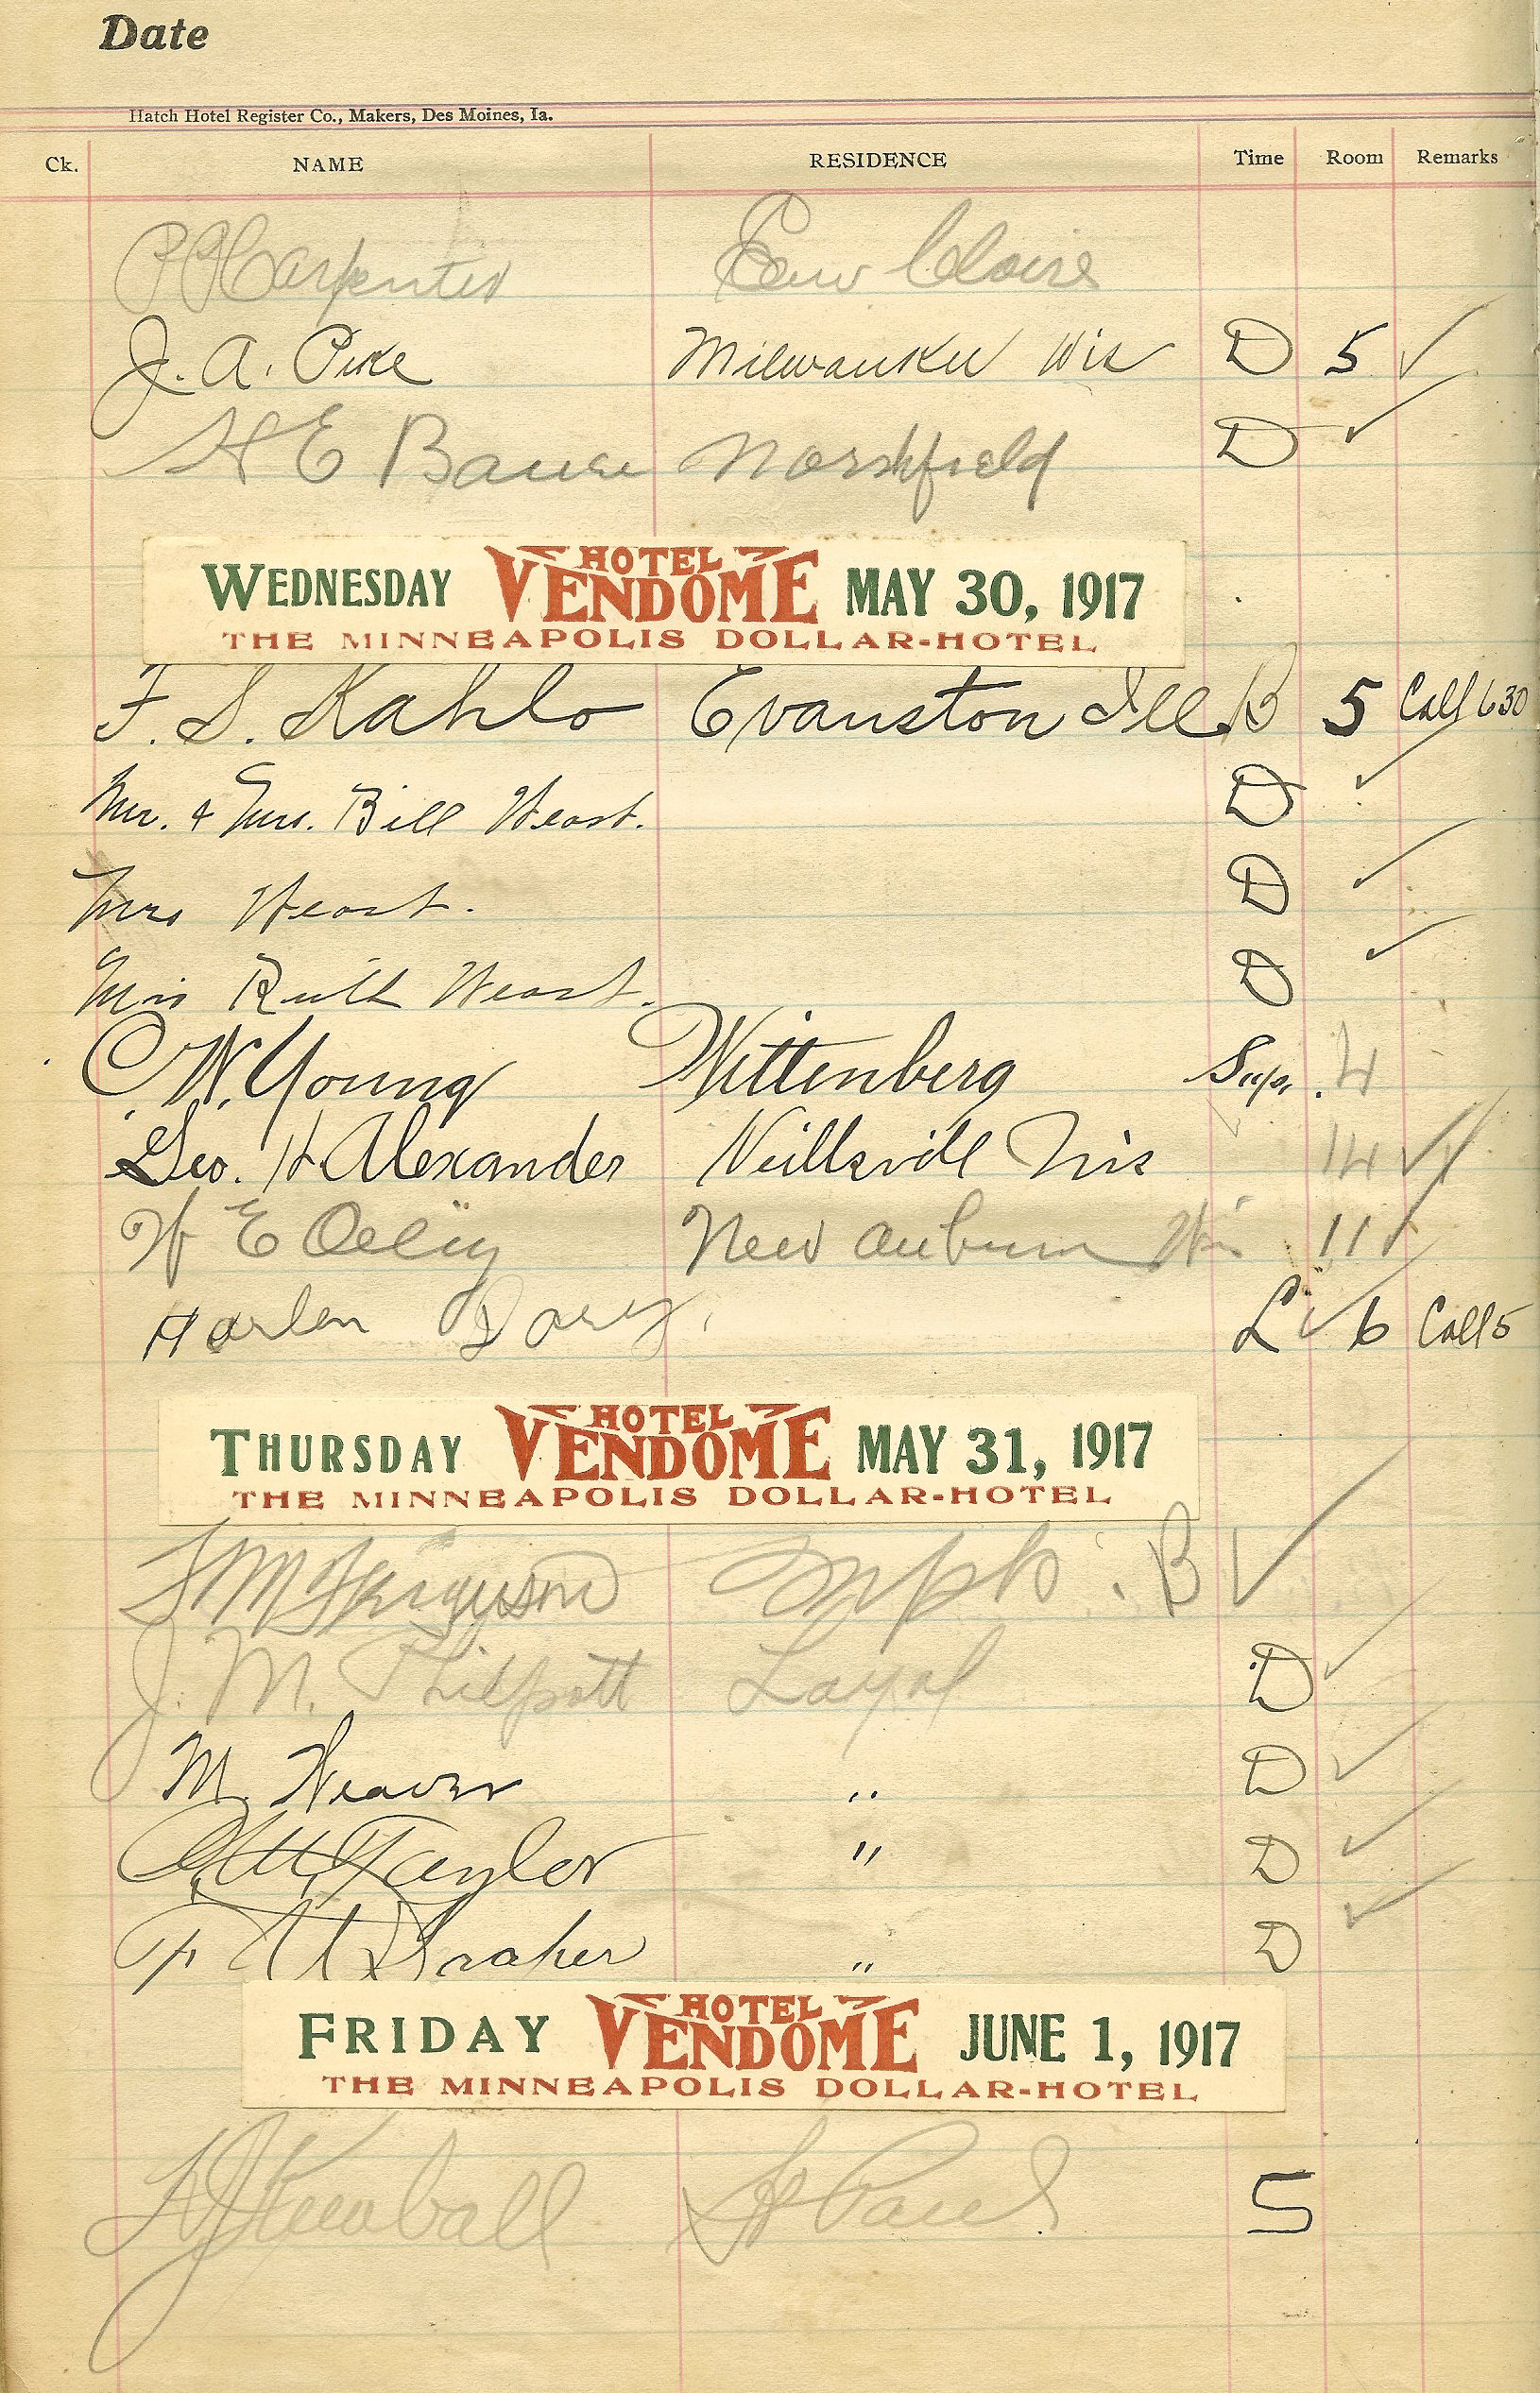 Date
Hatch Hotel Register Co., Makers, Des Moines, Ia.
Ck. NAME RESIDENCE Time Room Remarks
Carpenter Eau Claire
J. A. Pike Milwaukee Wis D 5 ✓
H E Bauer Marshfield D ✓
WEDNESDAY HOTEL VENDOME MAY 30, 1917
THE MINNEAPOLIS DOLLAR-HOTEL
F. S. Kahlo Evanston Ill B 5 Call 630
Mr. & Mrs. Bill Heart. D ✓
Mrs Heart. D ✓
Miss Ruth Heart. D ✓
C. W. Young Wittenberg Sup. 4
Geo. H. Alexander Neillsvill Wis 14 ✓
W E New Auburn Wis 11 ✓
Harlen L ✓ 6 Call 5
THURSDAY HOTEL VENDOME MAY 31, 1917
THE MINNEAPOLIS DOLLAR-HOTEL
Ferguson Mpls. B ✓
J. M. Philpott Loyal D ✓
M. Weaver " D ✓
Taylor " D ✓
F " D ✓
FRIDAY HOTEL VENDOME JUNE 1, 1917
THE MINNEAPOLIS DOLLAR-HOTEL
Kimball St Paul S